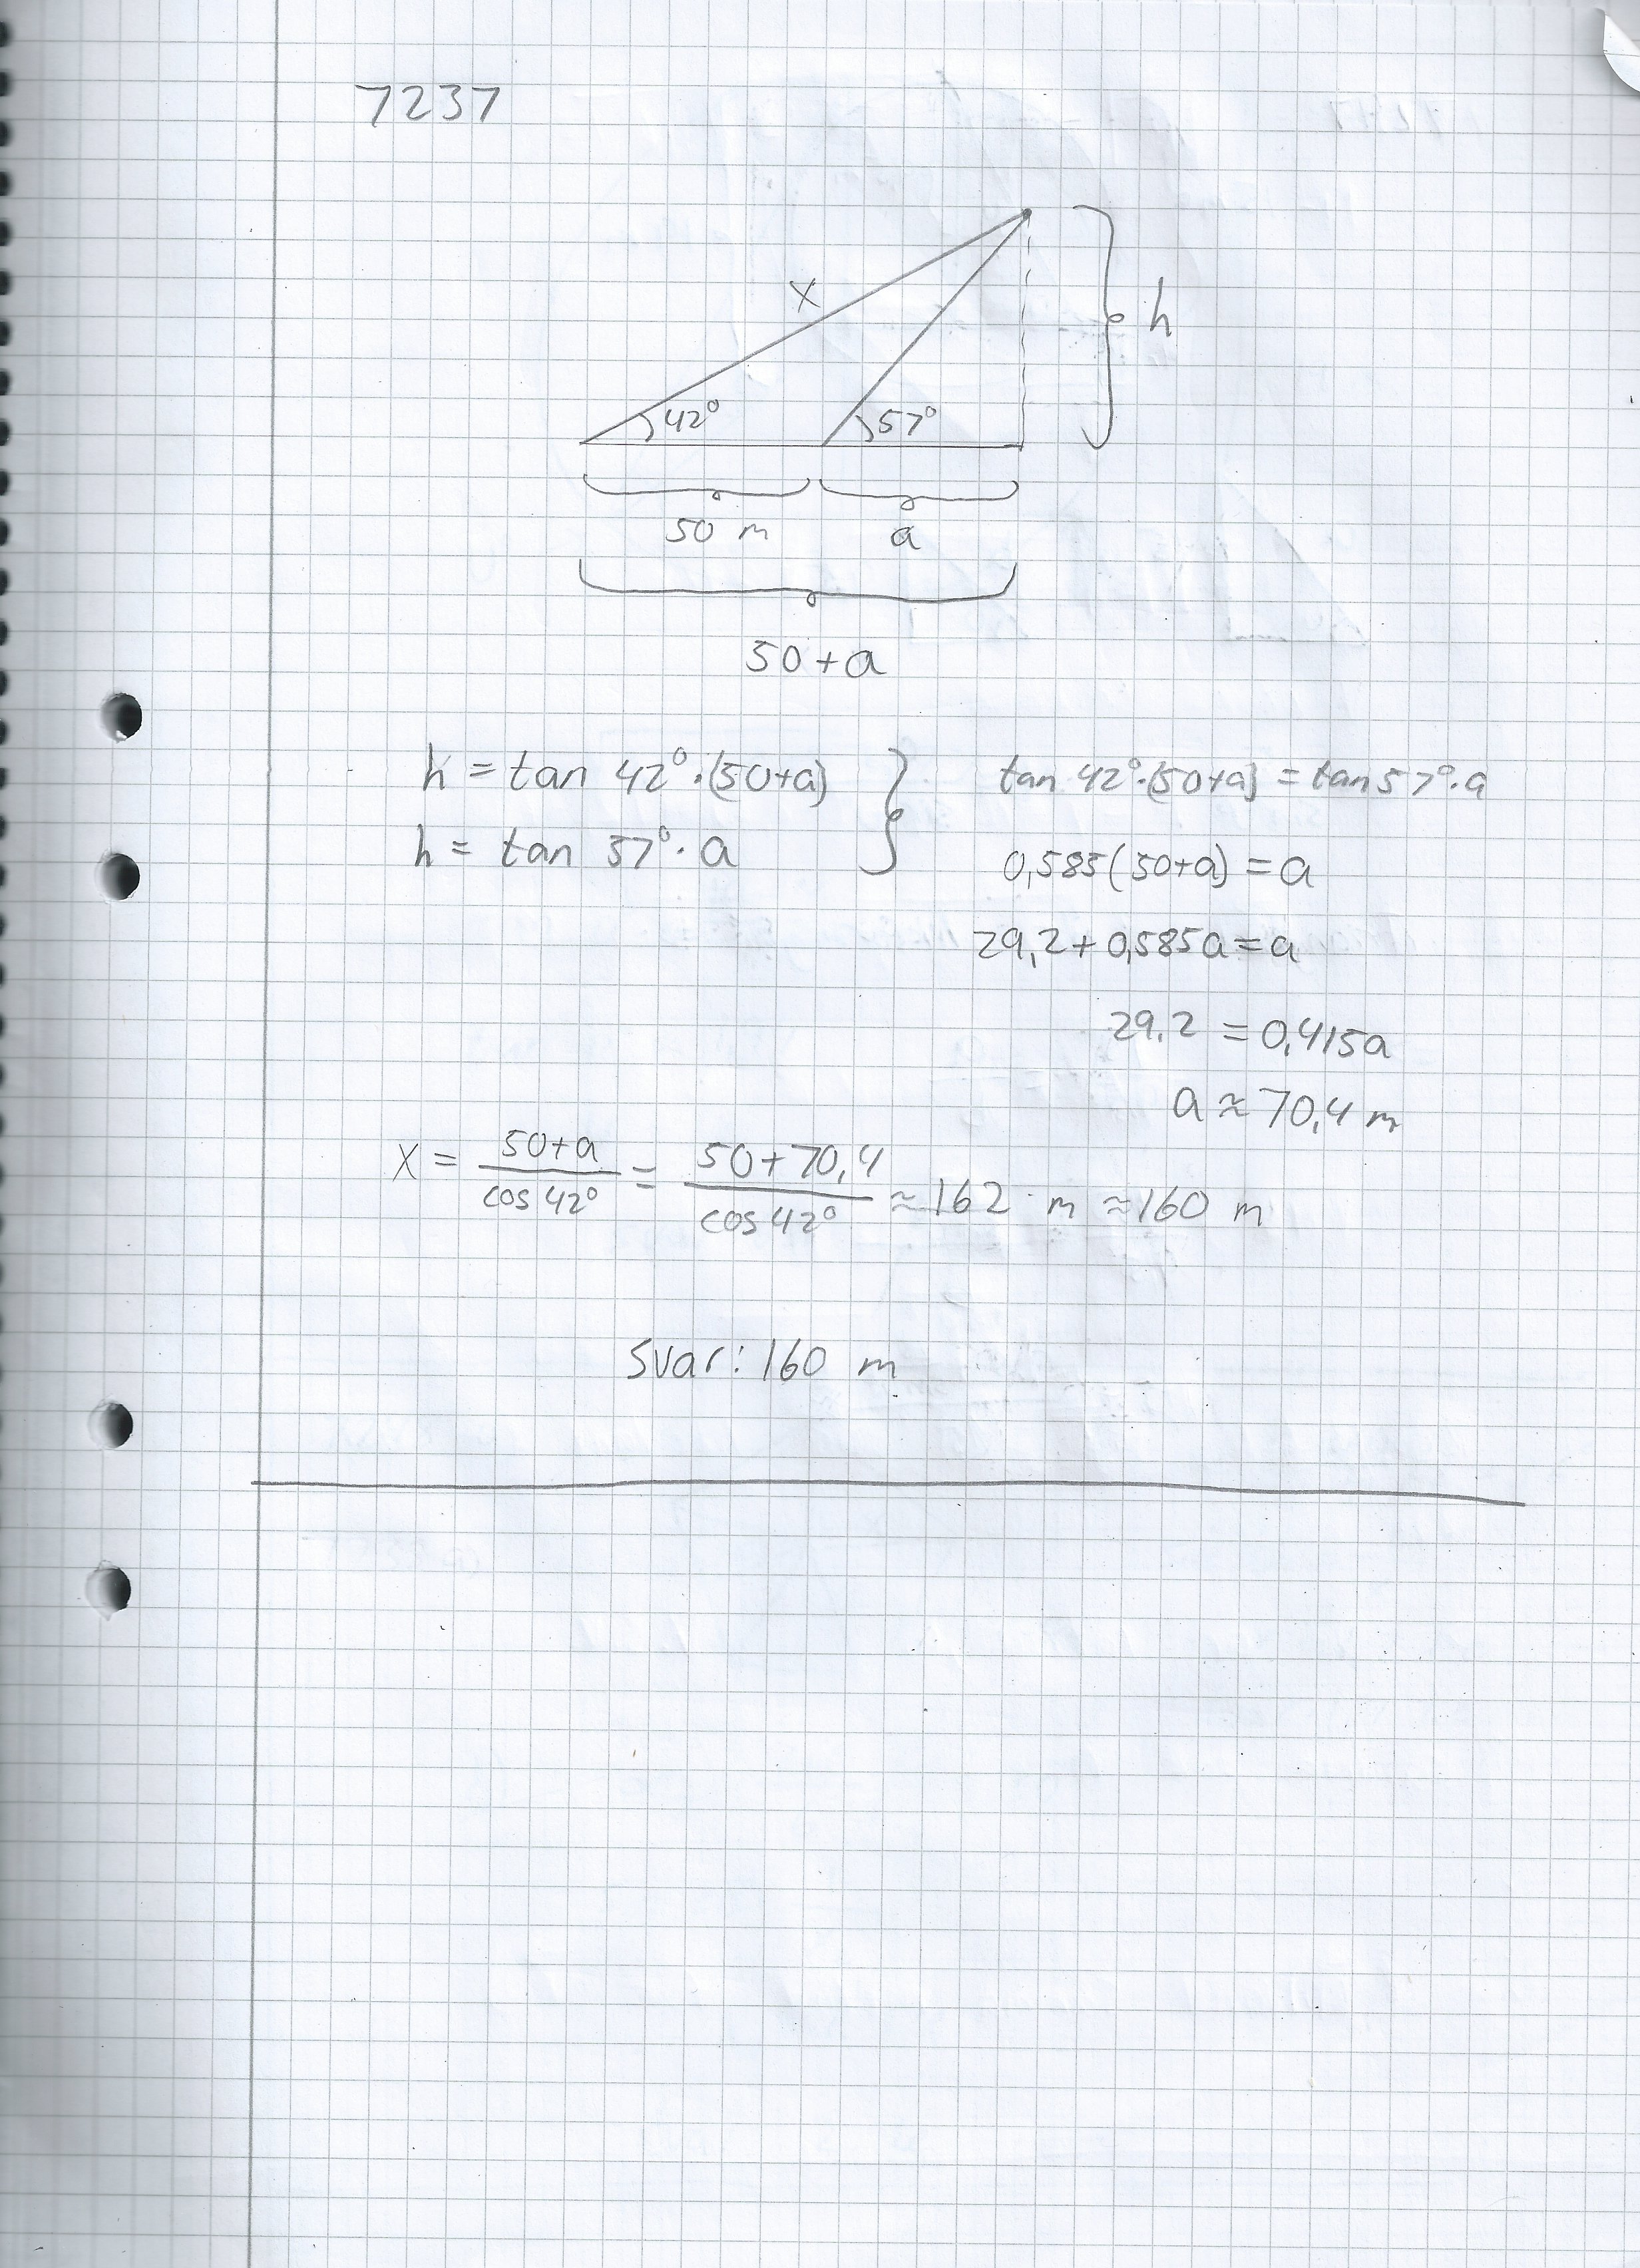 7237
x
h
42° 57°
50 m a
50+a
h = tan 42°·(50+a)
h = tan 57°·a
tan 42°·(50+a) = tan 57°·a
0,585(50+a) = a
29,2+0,585a = a
29,2 = 0,415a
a ≈ 70,4 m
x = 50+a / cos 42° = 50+70,4 / cos 42° ≈ 162 m ≈ 160 m
Svar: 160 m